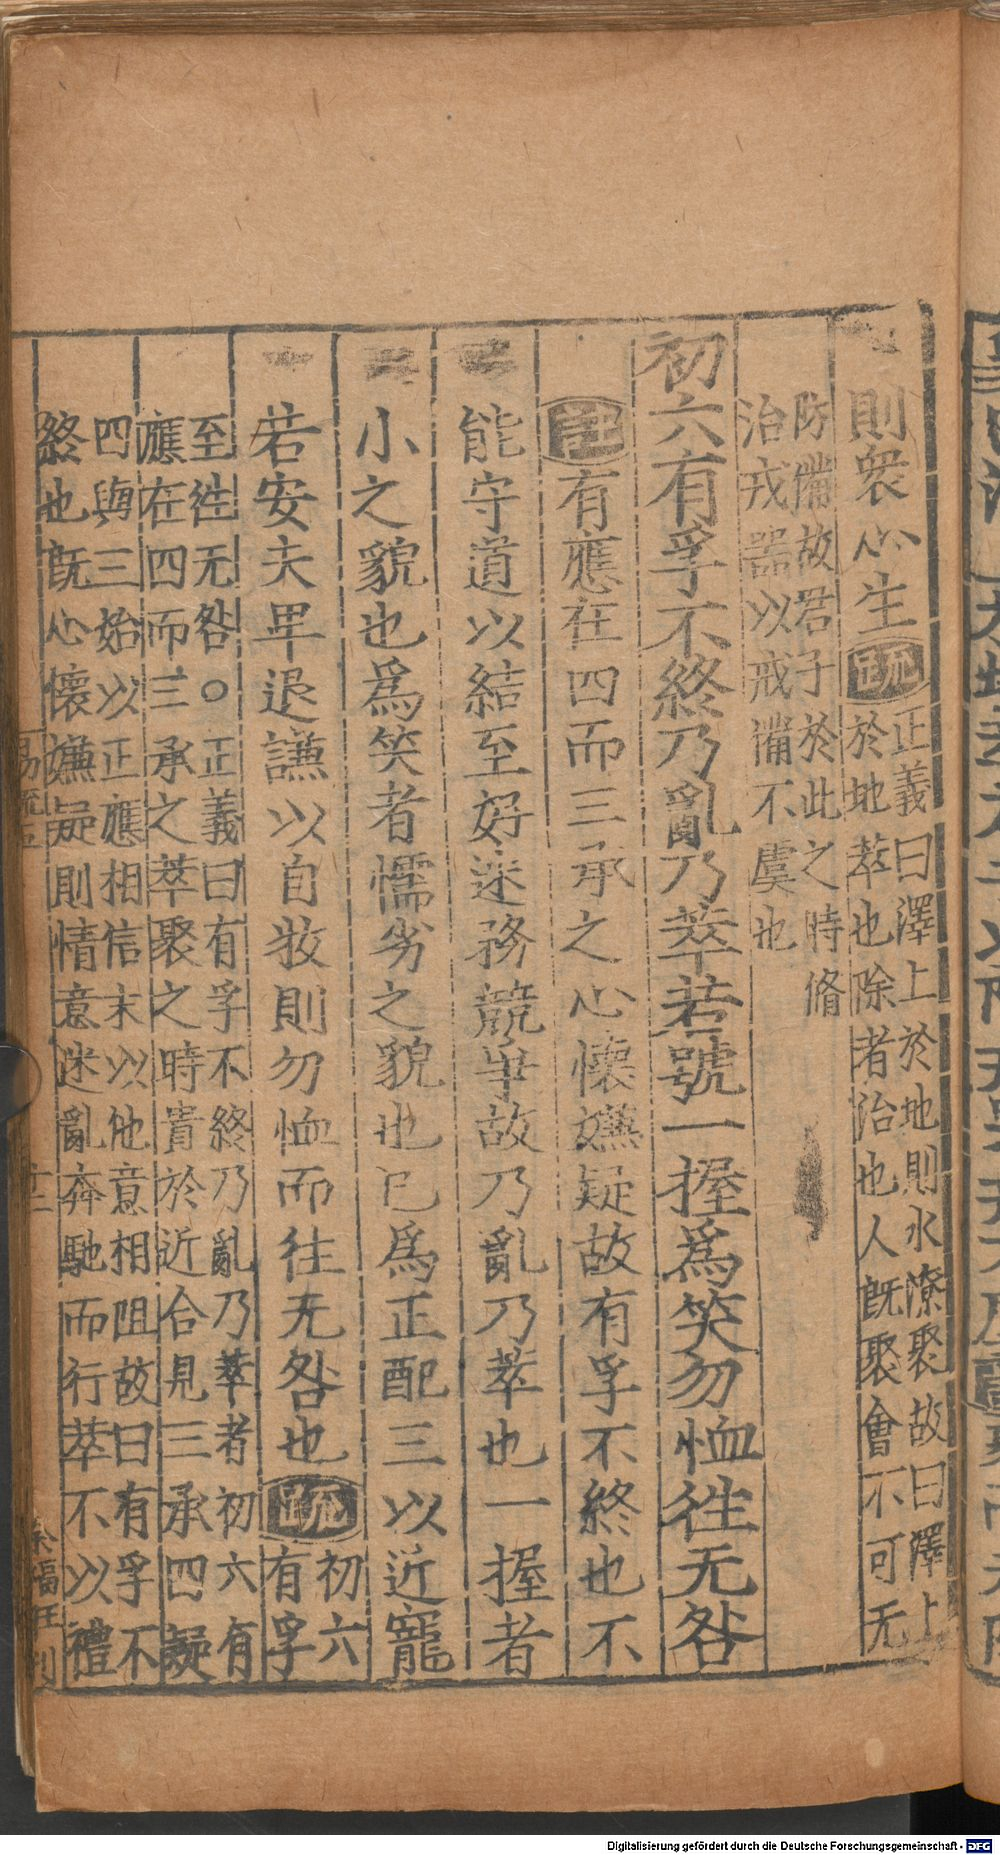 則衆心生疏正義曰澤上於地則水潦聚故曰澤上
於地萃也除者治也人旣聚會不可无
防備故君子於此之時脩
治戎器以戒備不虞也
初六有孚不終乃亂乃萃若號一握爲笑勿恤往无咎
註有應在四而三承之心懷嫌疑故有孚不終也不
能守道以結至好迷務競爭故乃亂乃萃也一握者
小之貌也爲笑者懦劣之貌也已爲正配三以近寵
若安夫卑退謙以自牧則勿恤而往无咎也疏初六
有孚
至往无咎○正義曰有孚不終乃亂乃萃者初六有
應在四而三承之萃聚之時貴於近合見三承四疑
四與三始以正應相信末以他意相阻故曰有孚不
終也旣心懷嫌疑則情意迷亂奔馳而行萃不以禮
易疏五
十二
余福旺刊
Digitalisierung gefördert durch die Deutsche Forschungsgemeinschaft - DFG